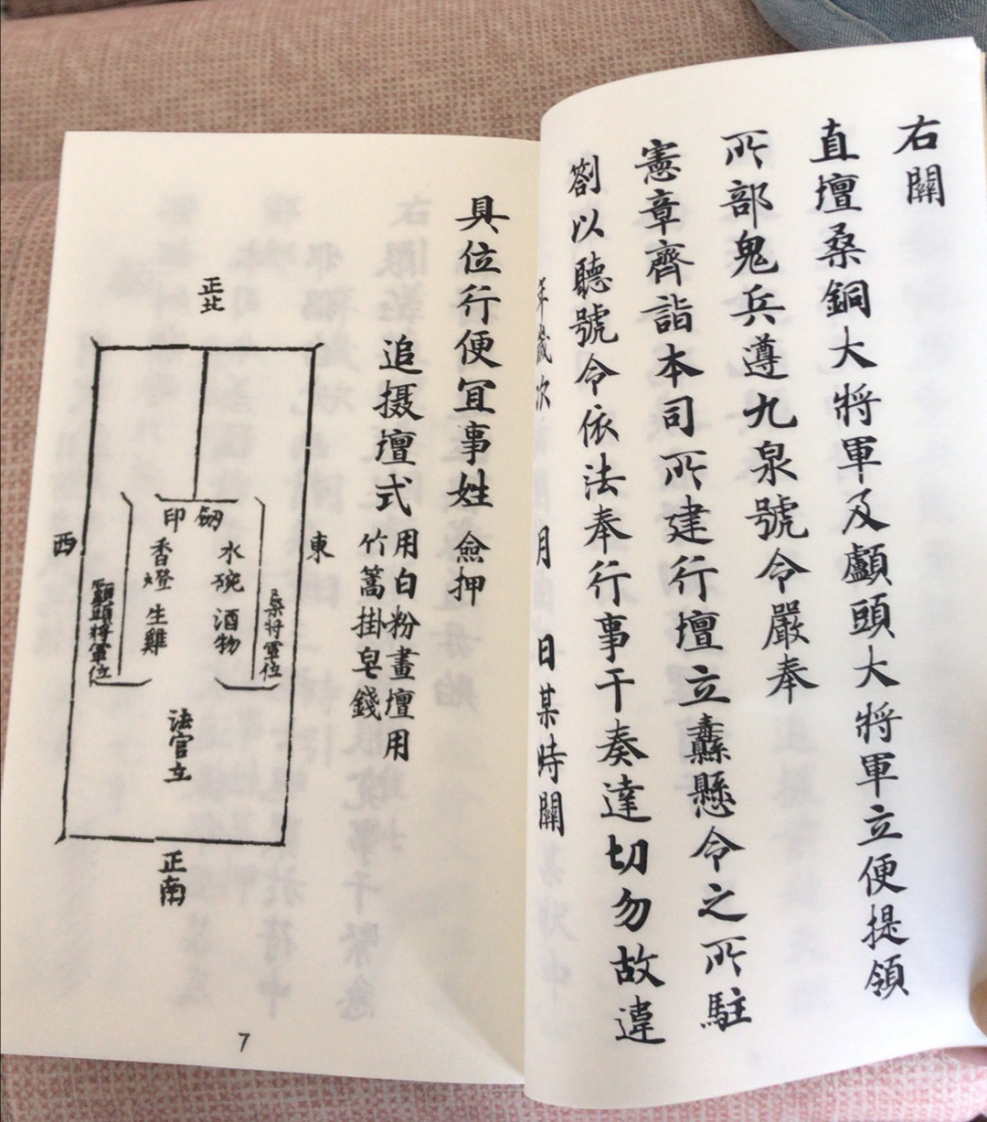 右關
直壇桑銅大將軍及顱頭大將軍立便提領
所部鬼兵遵九泉號令嚴奉
憲章齊詣本司所建行壇立纛懸令之所駐
劄以聽號令依法奉行事干奏達切勿故違
年歲次 月 日某時關
具位行便宜事姓 僉押
追摄壇式
用白粉畫壇用
竹篙掛皂錢
正北
東
西
正南
劒
印
水碗 酒物
香燈 生雞
桑將軍位
顱頭將軍位
法官立
7